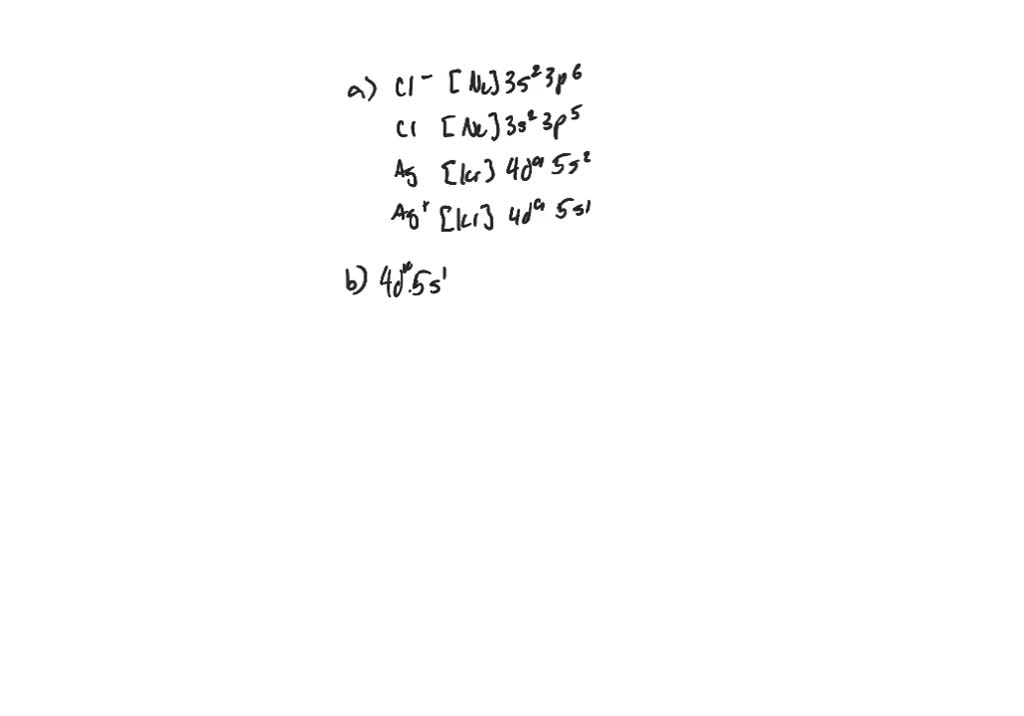 a) Cl⁻ [Ne] 3s² 3p⁶
Cl [Ne] 3s² 3p⁵
Ag [Kr] 4d⁹ 5s²
Ag⁺ [Kr] 4d⁹ 5s¹
b) 4d¹⁰ 5s¹